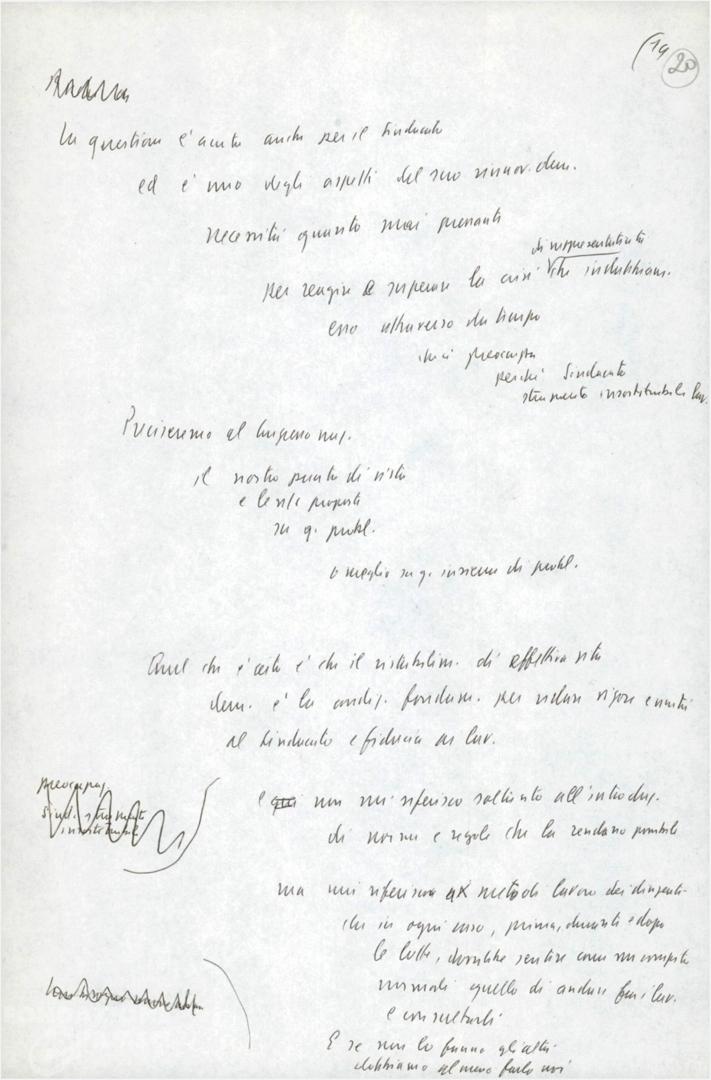 (19
20
La questione è acuta anche per il Sindacato
ed è uno degli aspetti del suo rinnov. dem.
necessità quanto mai pressante
di rappresentatività
per reagire e superare la crisi che indubbiam.
esso attraversa da tempo
che ci preoccupa
perché Sindacato
strumento insostituibile lav.
Preciseremo al
il nostro punto di vista
e le ns/ proposte
su q. probl.
o meglio su q. insieme di probl.
Quel che è certo è che il ristabilim. di effettiva vita
dem. è la condiz. fondam. per ridare vigore e unità
al Sindacato e fiducia ai lav.
preocupaz.
Sind. strumento
insostituibile
e qui non mi riferisco soltanto all'introduz.
di norme e regole che la rendano possibile
ma mi riferisco al metodo di lavoro dei dirigenti
che in ogni caso, prima, durante e dopo
le lotte, dovrebbe sentire come un compito
normale quello di andare fra i lav.
e consultarli
E se non lo fanno gli altri
dobbiamo almeno farlo noi